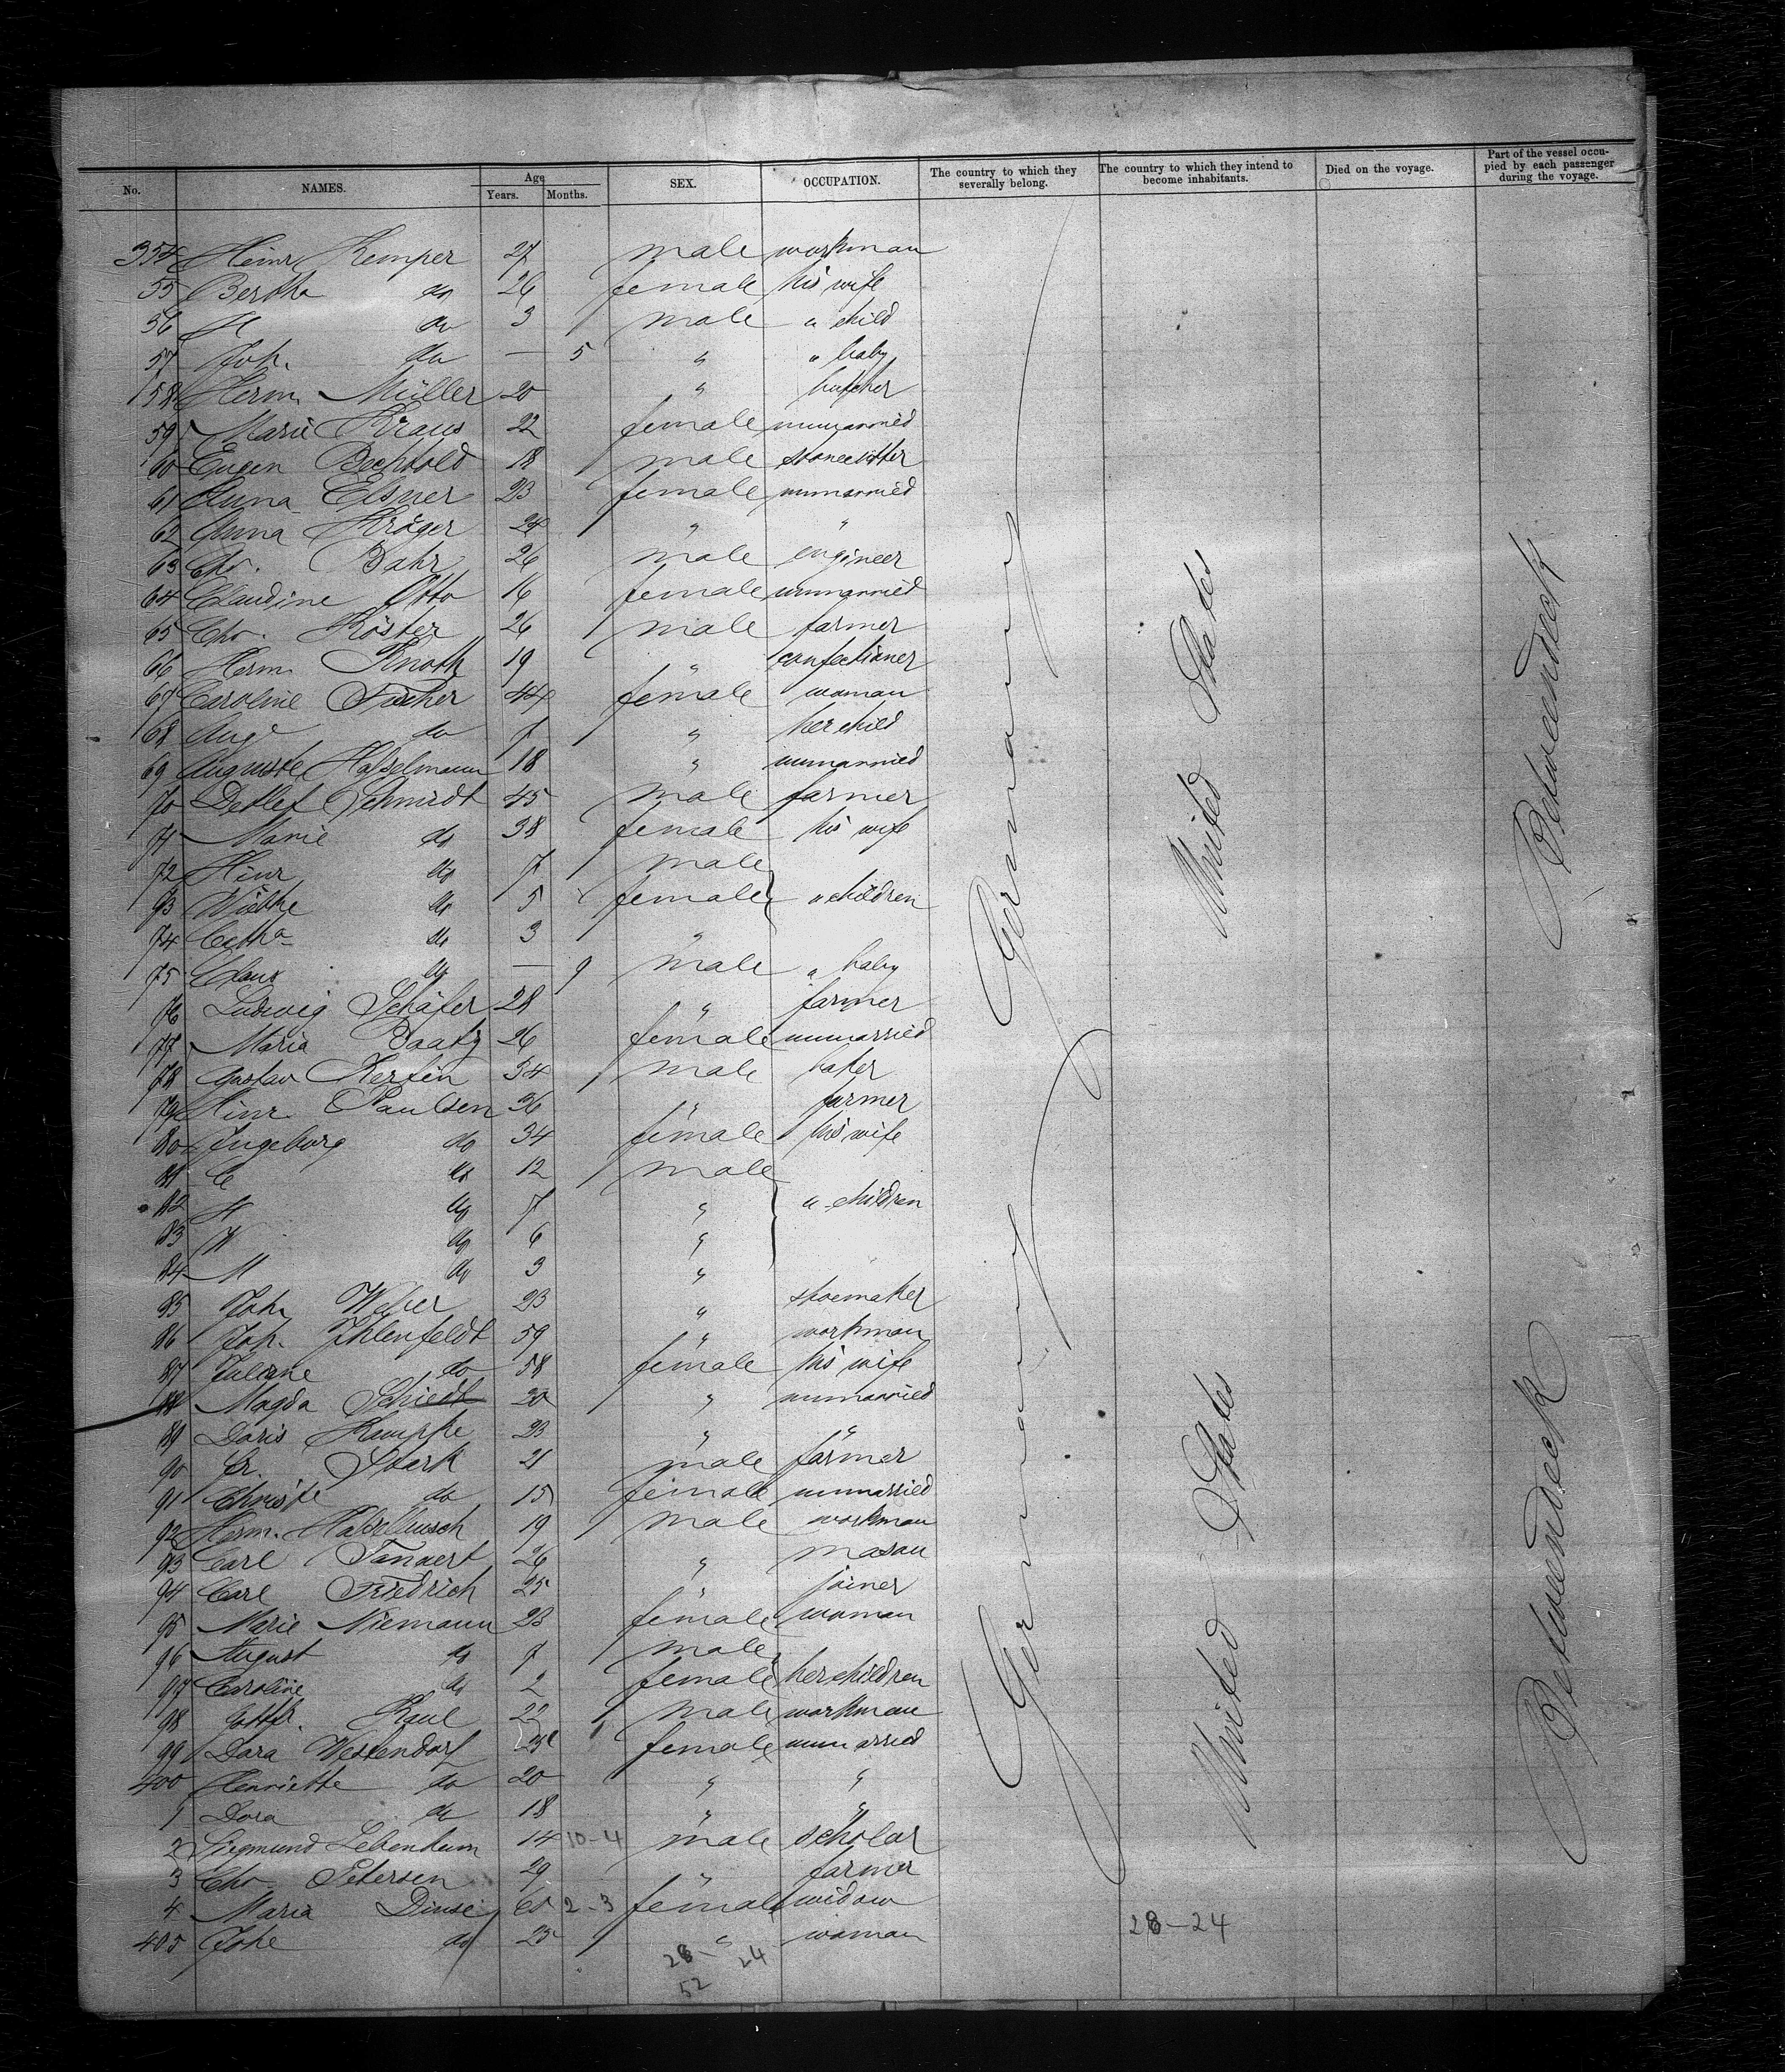 No. NAMES. Age Years. Months. SEX. OCCUPATION. The country to which they severally belong. The country to which they intend to become inhabitants. Died on the voyage. Part of the vessel occupied by each passenger during the voyage.
354 Heinr Kemper 27 male workman
55 Bertha do 26 female his wife
56 H do 3 male " child
57 Joh. do — 5 " " baby
58 Herm. Müller 20 " butcher
59 Marie Kraus 22 female unmarried
60 Eugen Bechtold 18 male stonecutter
61 Anna Elsner 23 female unmarried
62 Anna Kröger 24 " "
63 Chr. Bahr 26 male engineer
64 Claudine Otto 16 female unmarried
65 Chr. Köster 26 male farmer
66 Herm. Knoth 19 " confectioner
67 Caroline Fischer 44 female woman
68 Aug do 7 " her child
69 Auguste Hasselmann 18 " unmarried
70 Detlef Schmidt 45 male farmer
71 Marie do 38 female his wife
72 Hinr do 7 male
73 Wiebke do 5 female " children
74 Catha do 3 "
75 Claus do — 9 male " baby
76 Ludwig Schäfer 28 " farmer
77 Maria Baatz 26 female unmarried
78 Gustav Kersten 34 male baker
79 Hinr. Paulsen 36 " farmer
80 Ingeborg do 34 female his wife
81 C do 12 male
82 H do 7 " " children
83 W do 6 "
84 M do 3 "
85 Joh. Weber 23 " shoemaker
86 Joh. Ihlenfeldt 59 " workman
87 Juliane do 58 female his wife
88 Magda Schiedt 20 " unmarried
89 Doris Kampfe 23 " "
90 Fr. Stark 21 male farmer
91 Christe do 15 female unmarried
92 Herm. Hasselbusch 19 male workman
93 Carl Tannert 26 " mason
94 Carl Friedrich 25 " joiner
95 Marie Niemann 28 female woman
96 August do 7 male
97 Caroline do 2 female her children
98 Gottfr. Kaul 22 male workman
99 Dora Westendorf female unmarried
400 Henriette do 20 " "
1 Dora do 18 " "
2 Siegmund Lebenheim 14 10-4 male scholar
3 Chr. Petersen 29 " farmer
4 Maria Dinse 60 2-3 female widow
405 Johe do 25 " woman
28-24
28 - 24
52
Germany
United States
Betweendeck
Germany
United States
Betweendeck